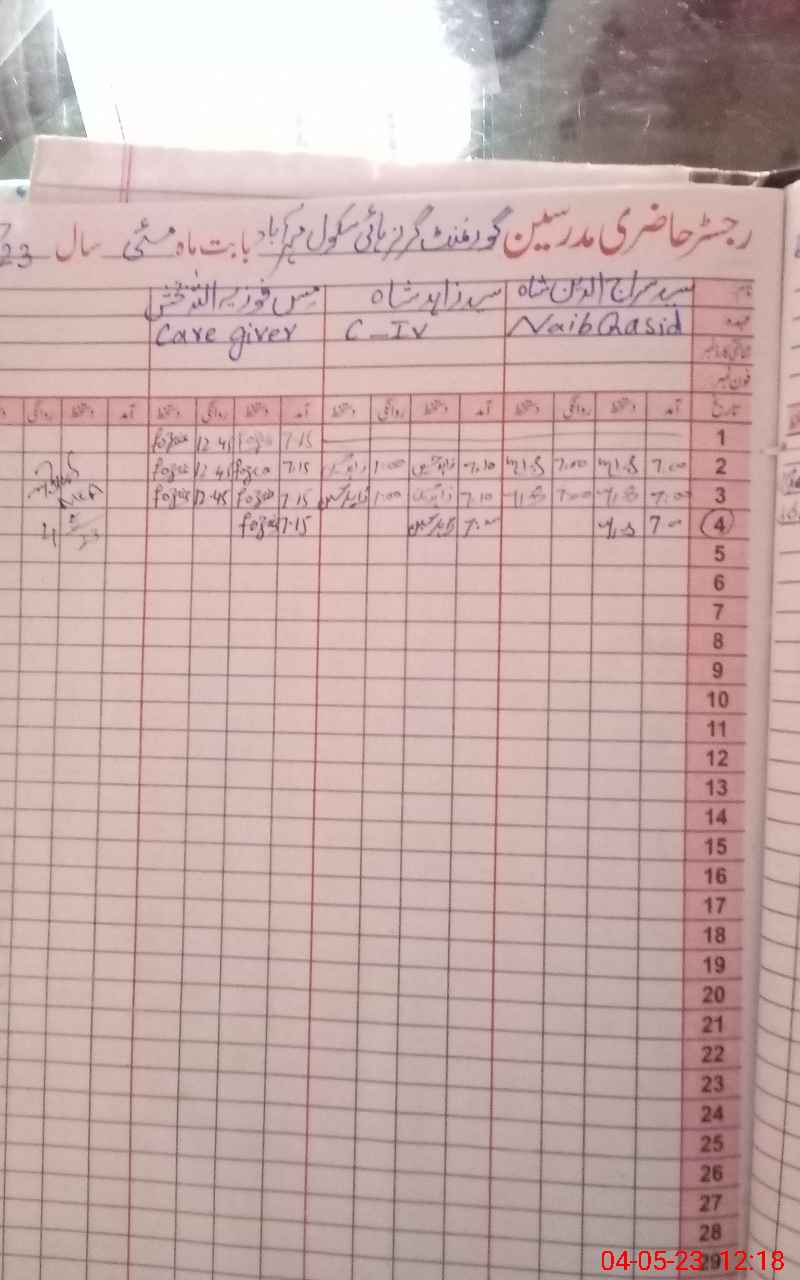 رجسٹر حاضری مدرسین گورنمنٹ گرلز ہائی سکول مہرآباد بابت ماہ مئی سال 23
نام سید سراج الدین شاہ سید زاہد شاہ مس فوزیہ اللہ بخش
عہدہ Naib Qasid C-IV Care giver
شناختی کارڈ نمبر
فون نمبر
تاریخ آمد دستخط روانگی دستخط آمد دستخط روانگی دستخط آمد دستخط روانگی دستخط آمد دستخط روانگی
1 7.15 fozia 12.45 fozia
2 7.00 7.00 7.10 1.00 7.15 fozia 12.45 fozia
3 7.00 7.00 7.10 1.00 7.15 fozia 12.45 fozia
4 7.00 7.00 7.15 fozia
5
6
7
8
9
10
11
12
13
14
15
16
17
18
19
20
21
22
23
24
25
26
27
28
29
04-05-23 12:18